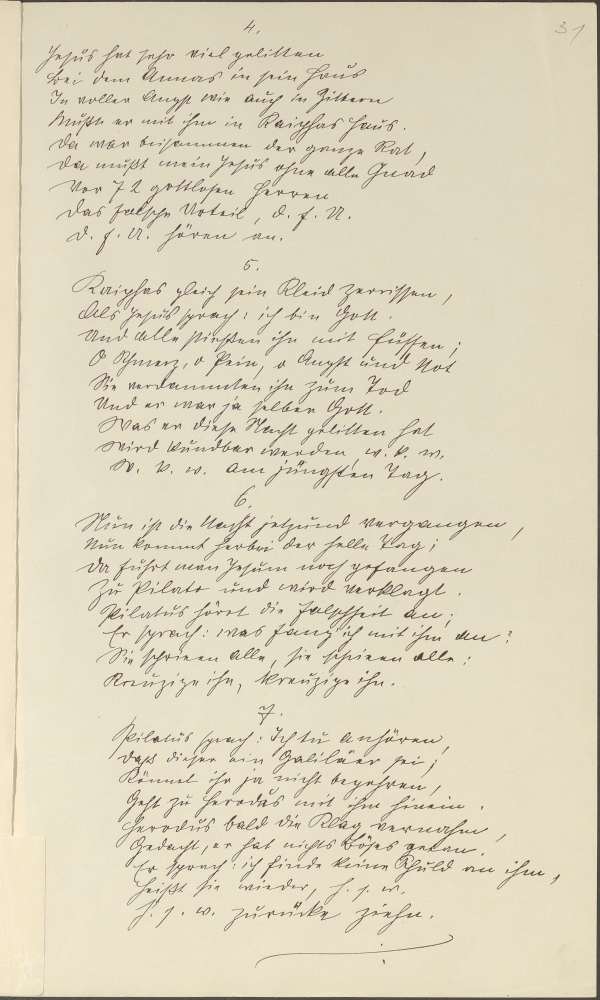 4.
31
Jesus hat sehr viel gelitten
Bei dem Annas in sein Haus
In voller Angst wie auch in Zittern
Mußte er mit ihm in Kaiphas Haus.
Da war beisammen der ganze Rat,
Da mußt mein Jesus ohne alle Gnad
Vor 72 gottlosen Herren
Das falsche Urteil, d. f. U.
D. f. U. hören an.
5.
Kaiphas gleich sein Kleid zerrissen,
Als Jesus sprach: ich bin Gott.
Und alle stießen ihn mit Füssen;
O Schmerz, o Pein, o Angst und Not
Sie verdammten ihn zum Tod
Und er war ja selber Gott.
Was er diese Nacht gelitten hat
Wird kundbar werden, w. k. w.
W. k. w. am jüngsten Tag.
6.
Nun ist die Nacht jetzund vergangen,
Nun kommt herbei der helle Tag;
Da führt man Jesum noch gefangen
Zu Pilato und wird verklagt.
Pilatus höret die Falschheit an;
Er sprach: was fang ich mit ihm an?
Sie schrieen alle, sie schrieen alle:
Kreuzige ihn, kreuzige ihn.
7.
Pilatus sprach: Ich tu anhören,
Daß dieser ein Galiläer sei;
Könnet ihr ja nicht begehren,
Geht zu Herodas mit ihm hinein.
Herodus bald die Klag vernahm,
Gedacht, er hat nichts Böses getan.
Er sprach: ich finde keine Schuld an ihm,
Heißt sie wieder, h. s. w.
H. s. w. zurücke ziehn.